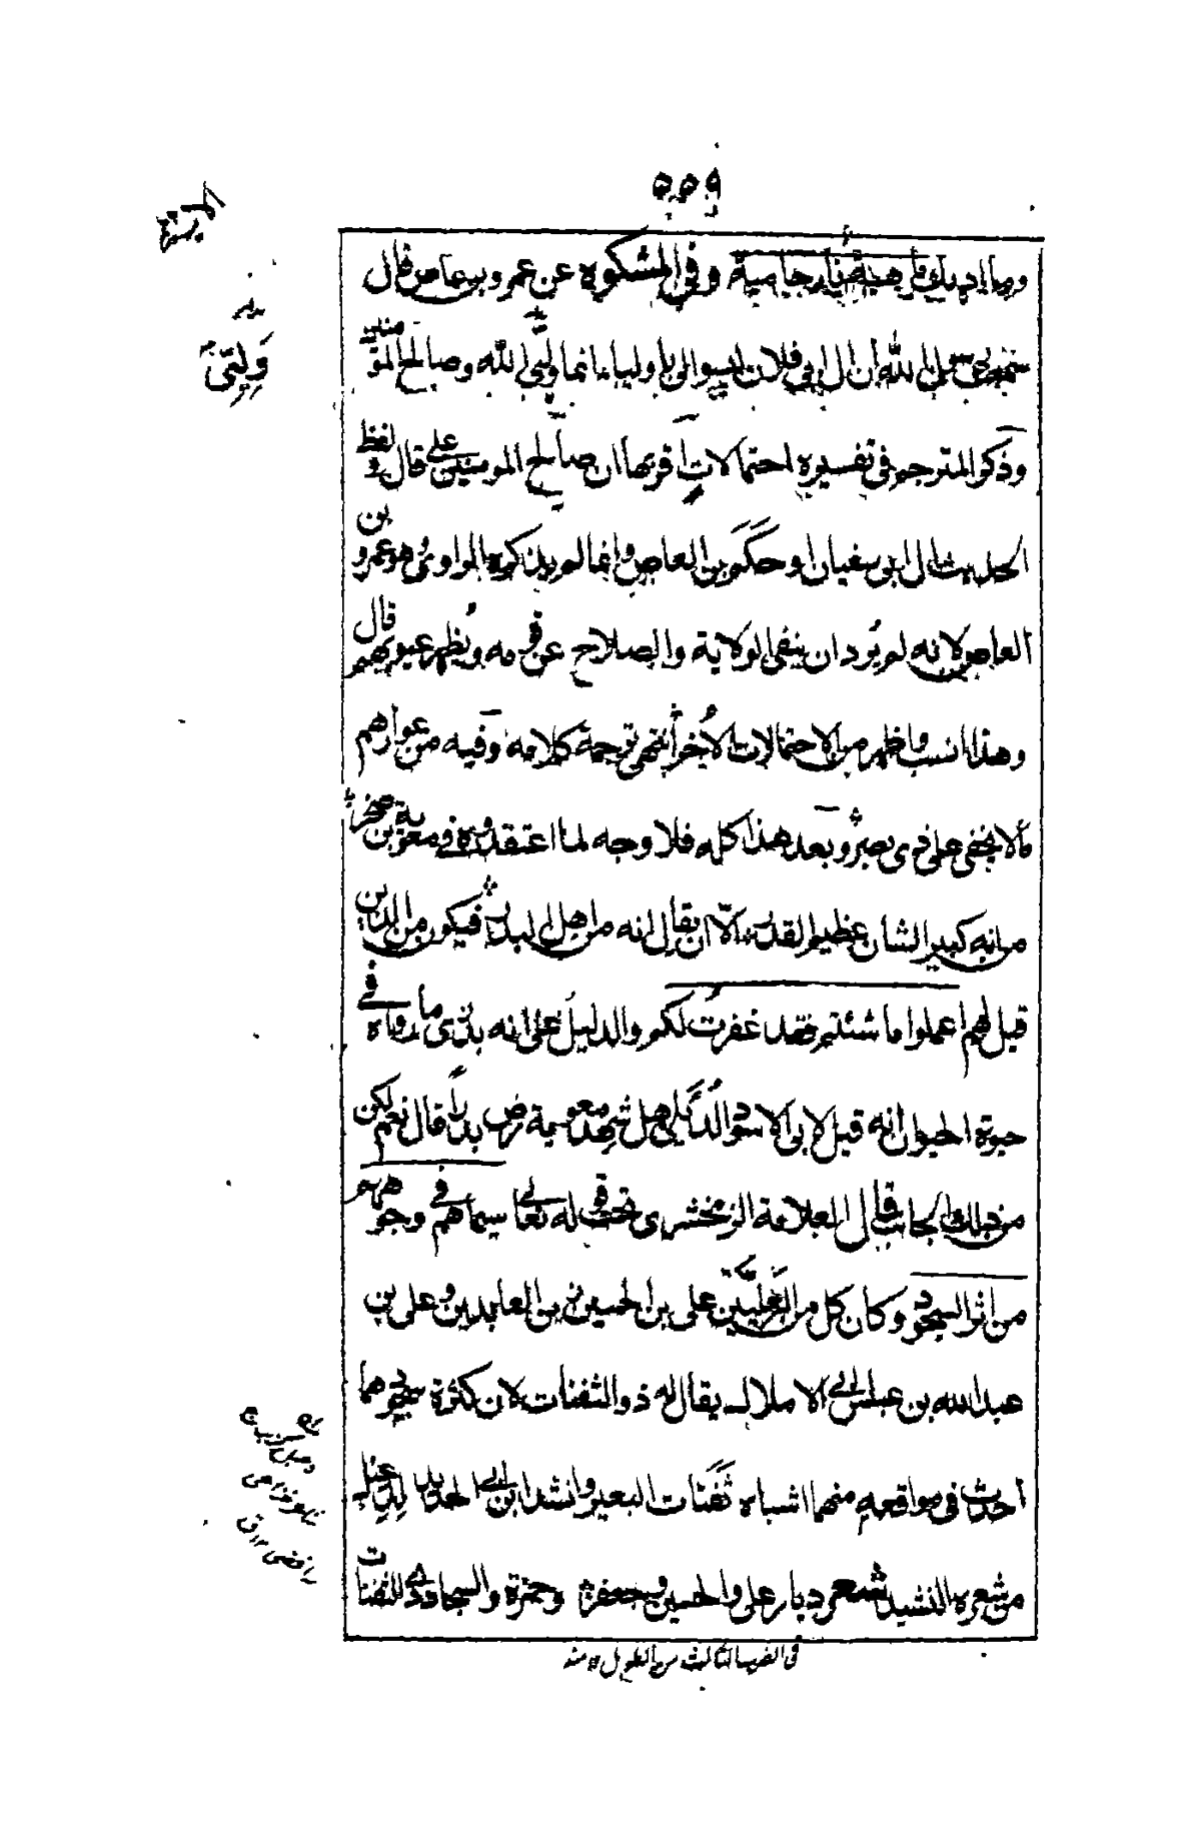 ٥٥٩
الآية
وما ادريك ما هيه نار حامية وفي المشكوة عن عمرو بن عاص قال
سمعت رسول الله ان ال ابي فلان ليسوا لي باولياء انما وليي الله وصالح المؤمنين
وليّي
وذكر المترجم في تفسيره احتمالات اقربها ان صالح المومنين علي قال ولفظ
الحديث ال ابي سفيان او حكم بن العاص وانما لم يذكره الراوي وهو عمرو بن
العاص لانه لم يُرد ان ينفي الولاية والصلاح عن قومه ويُظهر عيوبهم قال
وهذا انسب واظهر من الاحتمالات الاُخر انتهى ترجمة كلامه وفيه من عوارهم
مالا يخفى على ذي بصر وبعد هذا كله فلا وجه لما اعتقدوه في معوية بن صخر
من انه كبير الشان عظيم القدر الّا ان يقال انه من اهل البدر فيكون من الذين
قيل لهم اعملوا ما شئتم فقد غفرت لكم والدليل على انه بدري ما رواه في
حيوة الحيوان انه قيل لابي الاسود الدُئلي هل شهد معوية رض بدراً قال نعم لكن
من ذلك الجانب قال العلامة الزمخشري تحت قوله تعالى سيماهم في وجوههم
من اثر السجود وكان كل من العَلِيَّين علي بن الحسين زين العابدين وعلي بن
عبد الله بن عباس ابي الاملاك يقال له ذو الثفنات لان كثرة سجودهما
احدثت في مواقعه منهما اشباه ثَفَنات البعير وانشد ابن ابي الحديد لدعبل
من شعره النشيد شعر ديار علي والحسين وجعفر وحمزة والسجاد ذي الثفنات
في الضرب الثالث من الطويل ١٢ منه